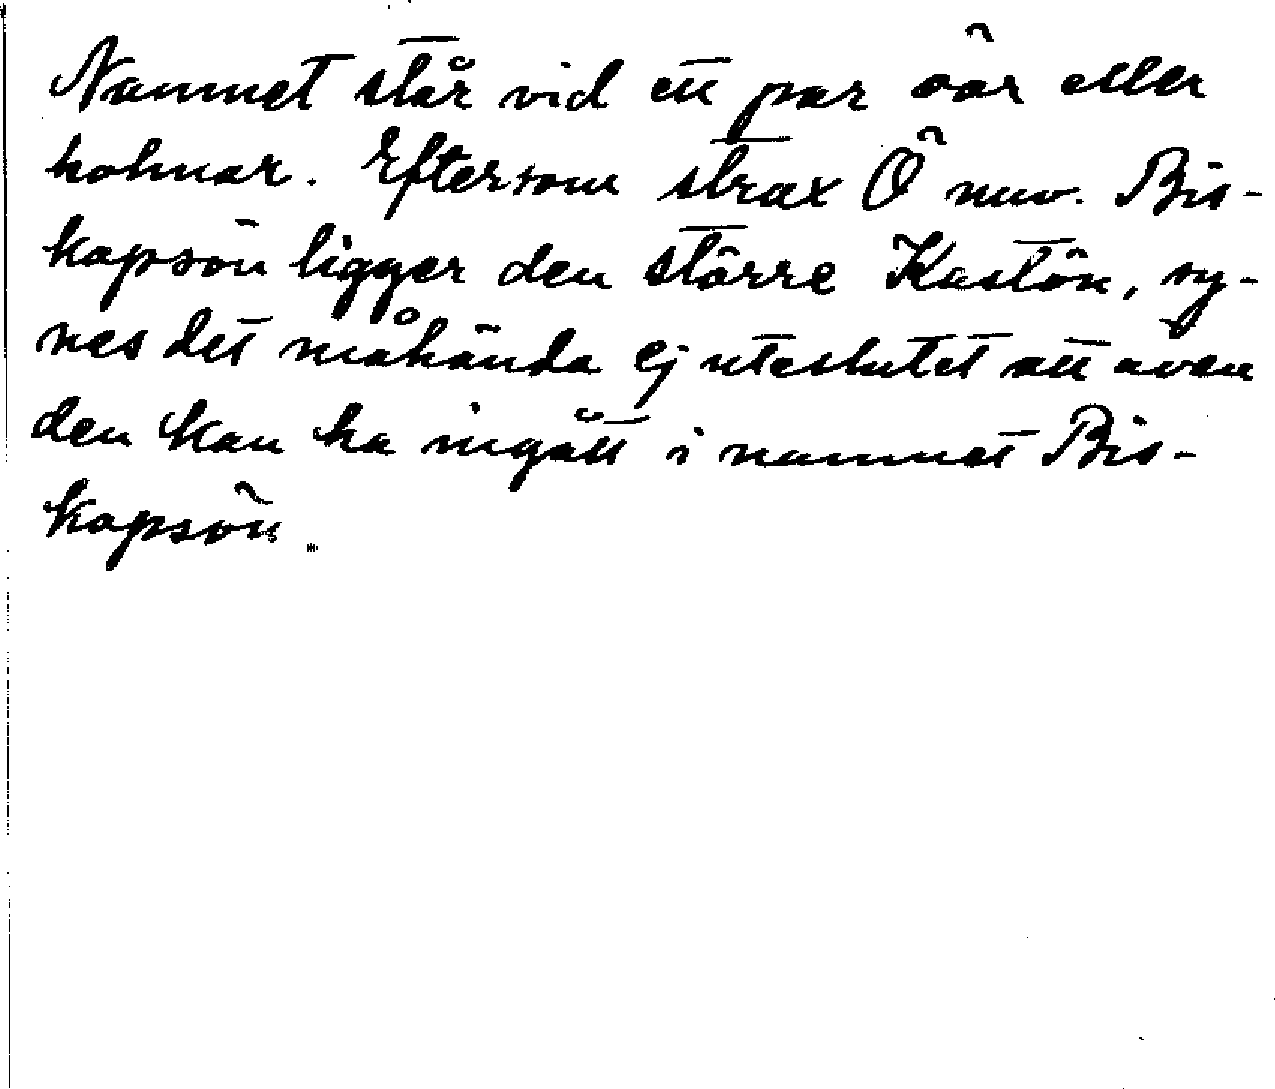 Namnet står vid ett par öar eller
holmar. Eftersom strax Ö nuv. Bis-
kopsön ligger den större Kastön, sy-
nes det måhända ej uteslutet att även
den kan ha ingått i namnet Bis-
kopsön.